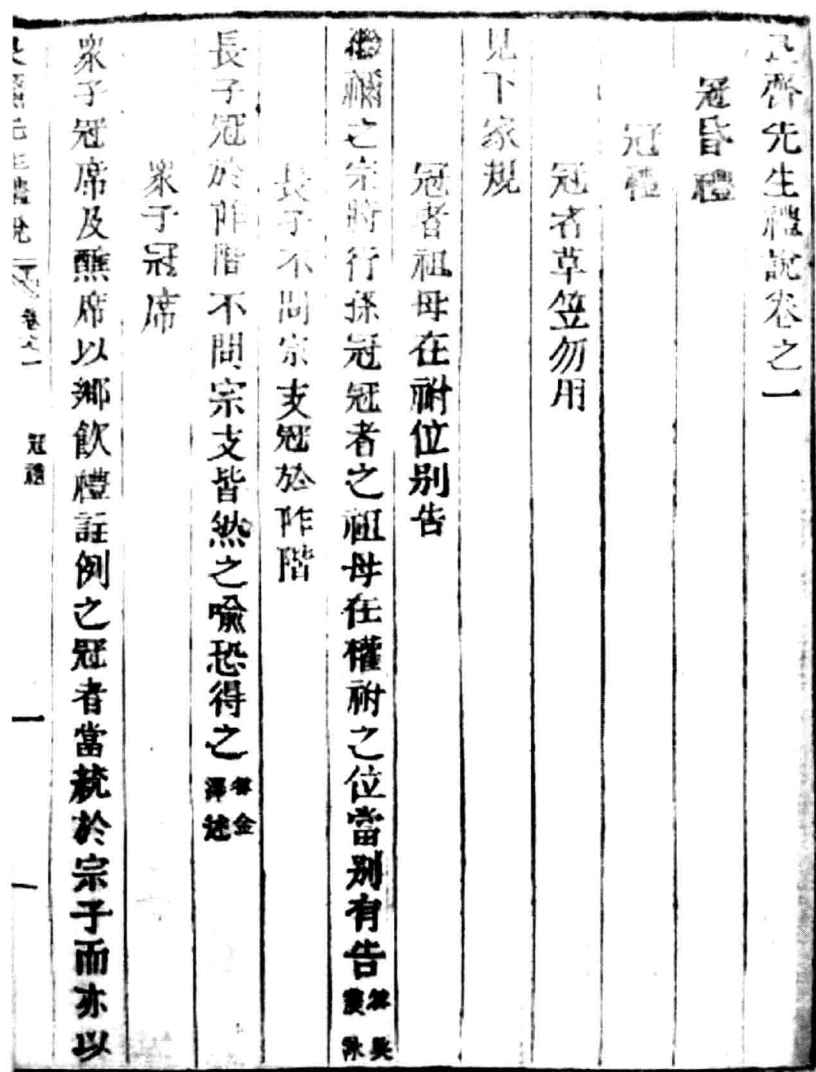 艮齋先生禮說卷之一
冠昏禮
冠禮
冠者草笠勿用
見下家規
冠者祖母在祔位別告
繼禰之宗時行孫冠冠者之祖母在權祔之位當別有告答吳震泳
長子不問宗支冠於阼階
長子冠於阼階不問宗支皆然之喩恐得之答金澤述
衆子冠席
衆子冠席及醮席以鄉飮禮註例之冠者當統於宗子而亦以
艮齋先生禮說 卷之一 冠禮 一